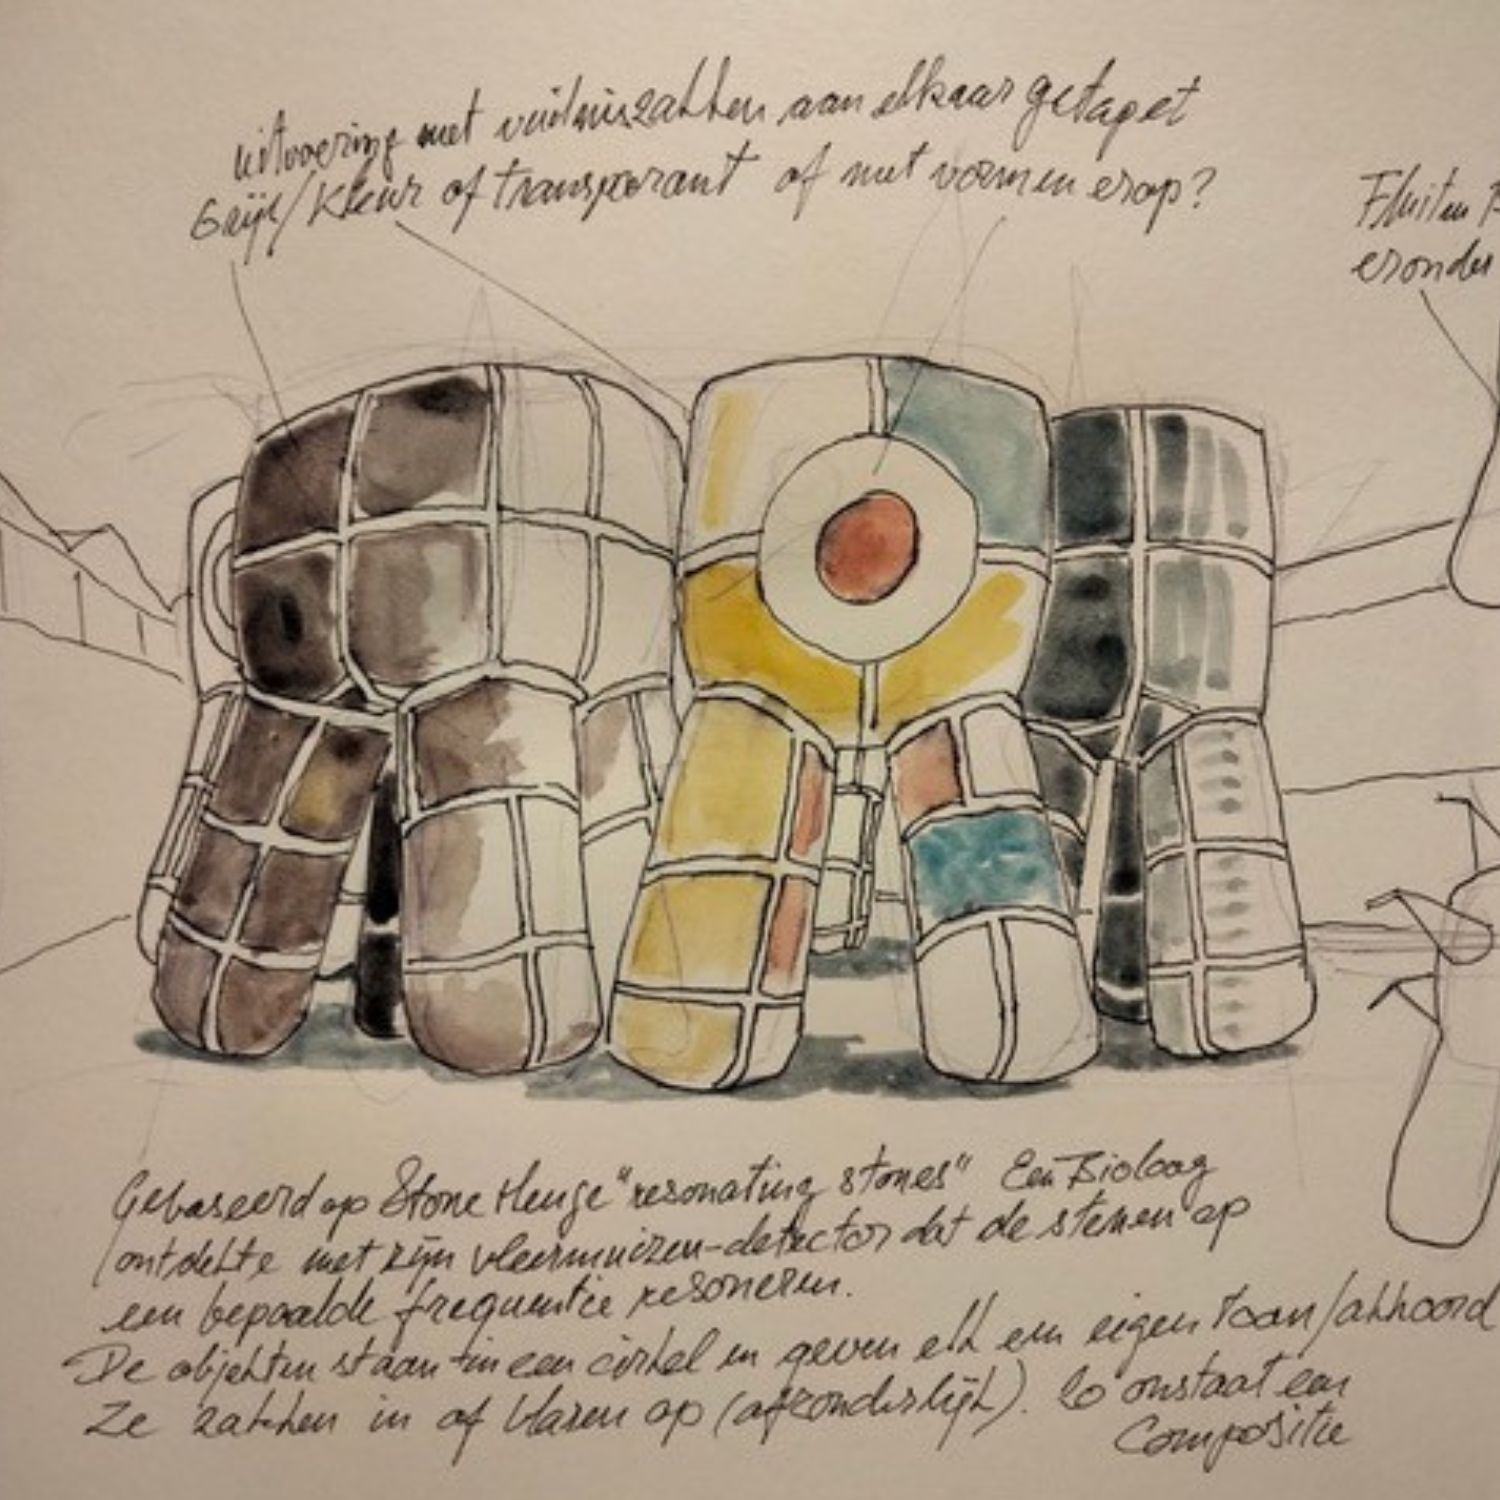 uitvoering met vuilniszakken aan elkaar getapet
Grijs/Kleur of transparant of met vormen erop?
Fluiten
eronder
Gebaseerd op Stone Henge "resonating stones" Een Bioloog
ontdekte met zijn vleermuizen-detector dat de stenen op
een bepaalde frequentie resoneren.
De objekten staan in een cirkel en geven elk een eigen toon/akkoord
Ze zakken in of blazen op (afzonderlijk). Zo onstaat een
Compositie